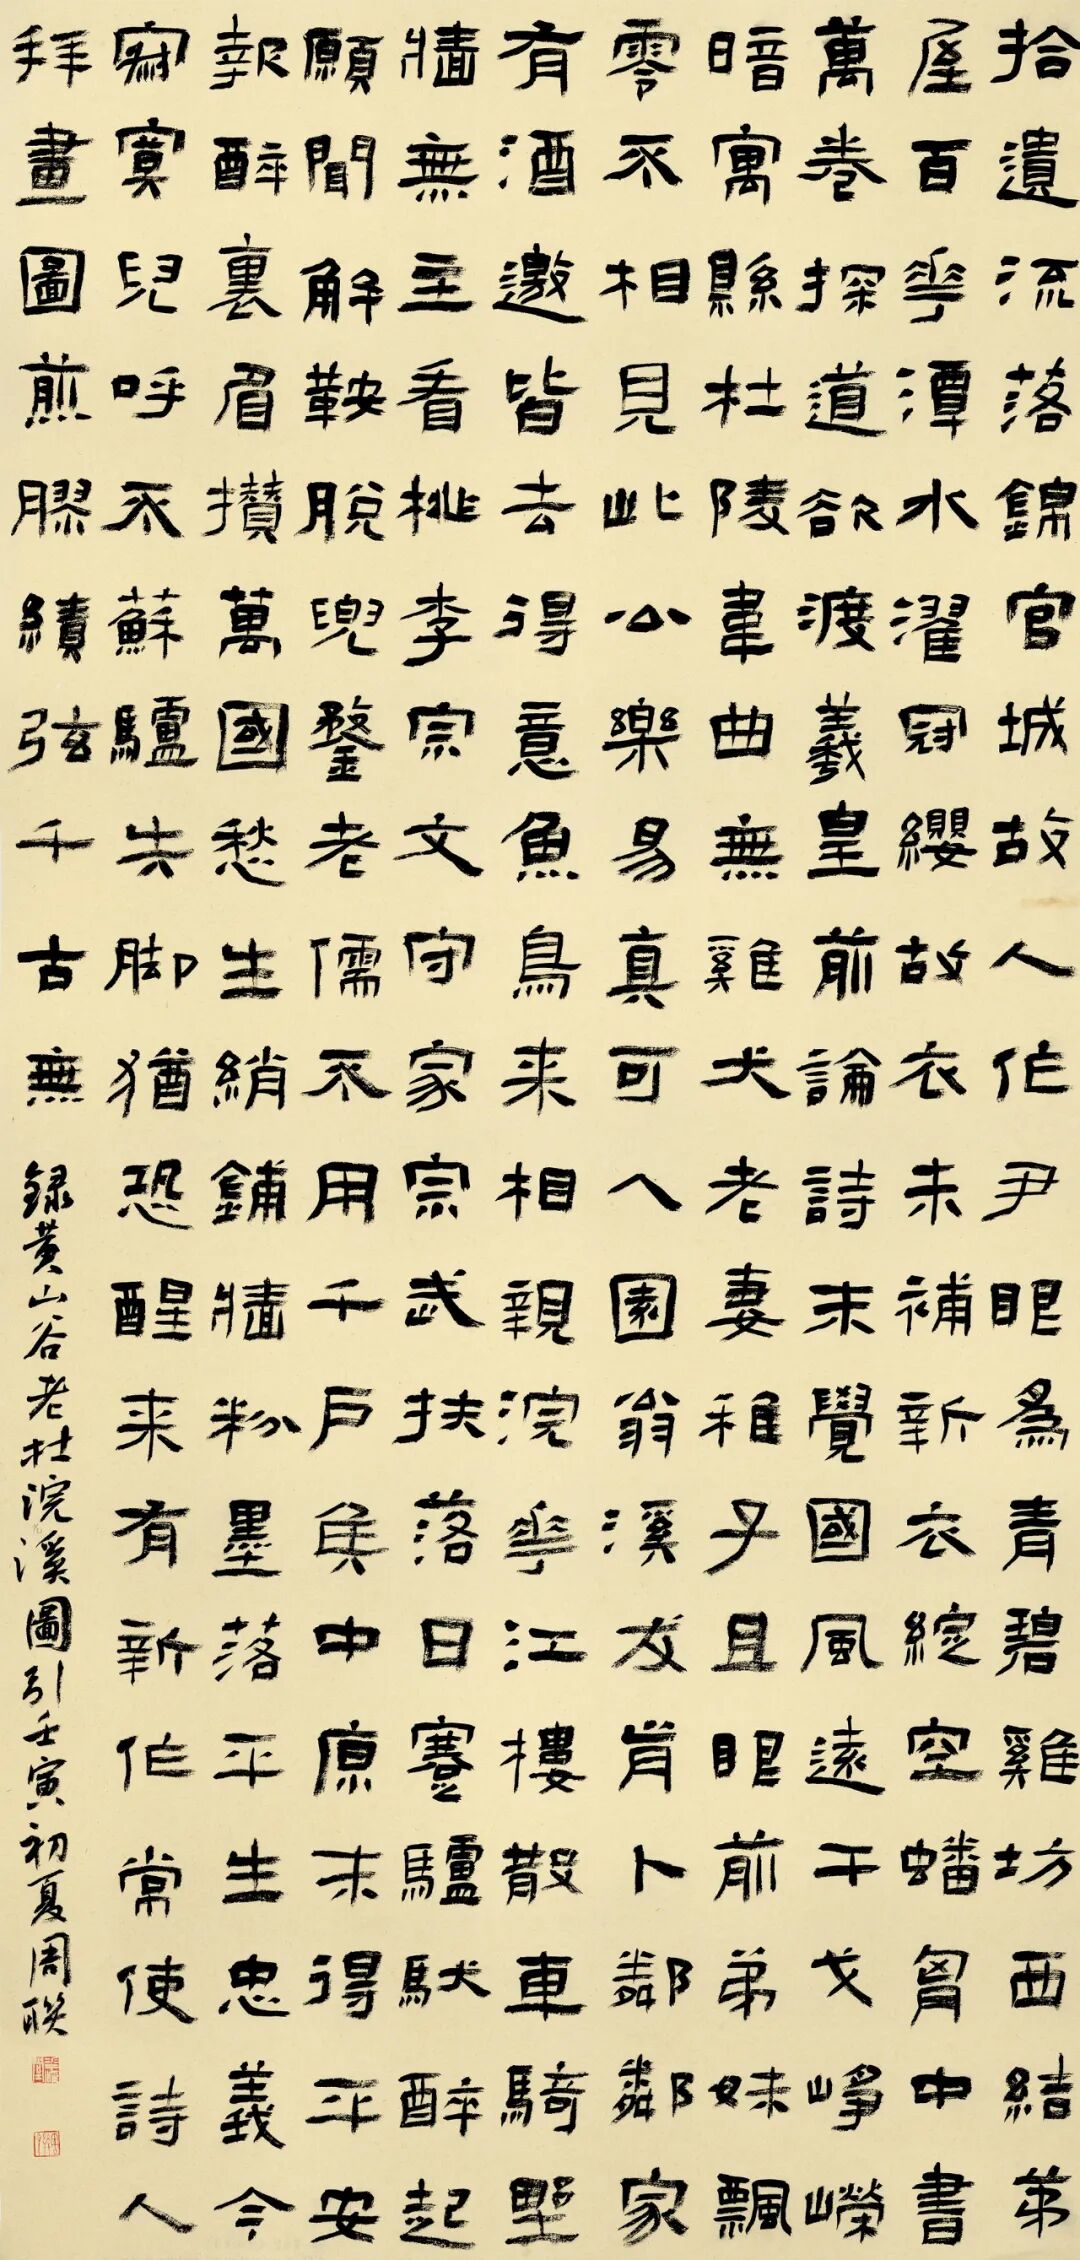 拾遺流落錦官城故人作尹眼為青碧雞坊西結茅
屋百花潭水濯冠纓故衣未補新衣綻空蟠胷中書
萬卷探道欲渡羲皇前論詩未覺國風遠干戈崢嶸
暗寓縣杜陵韋曲無雞犬老妻稚子且眼前弟妹飄
零不相見此公樂易真可人園翁溪友肯卜鄰鄰家
有酒邀皆去得意魚鳥来相親浣花江樓散車騎野
牆無主看桃李宗文守家宗武扶落日蹇驢馱醉起
願聞解鞍脫兜鍪老儒不用千戶侯中原未得平安
報醉裏眉攢萬國愁生綃鋪牆粉墨落平生忠義今
寂寞兒呼不蘇驢失脚猶恐醒来有新作常使詩人
拜畫圖煎膠續弦千古無
錄黃山谷老杜浣溪圖引壬寅初夏周聯